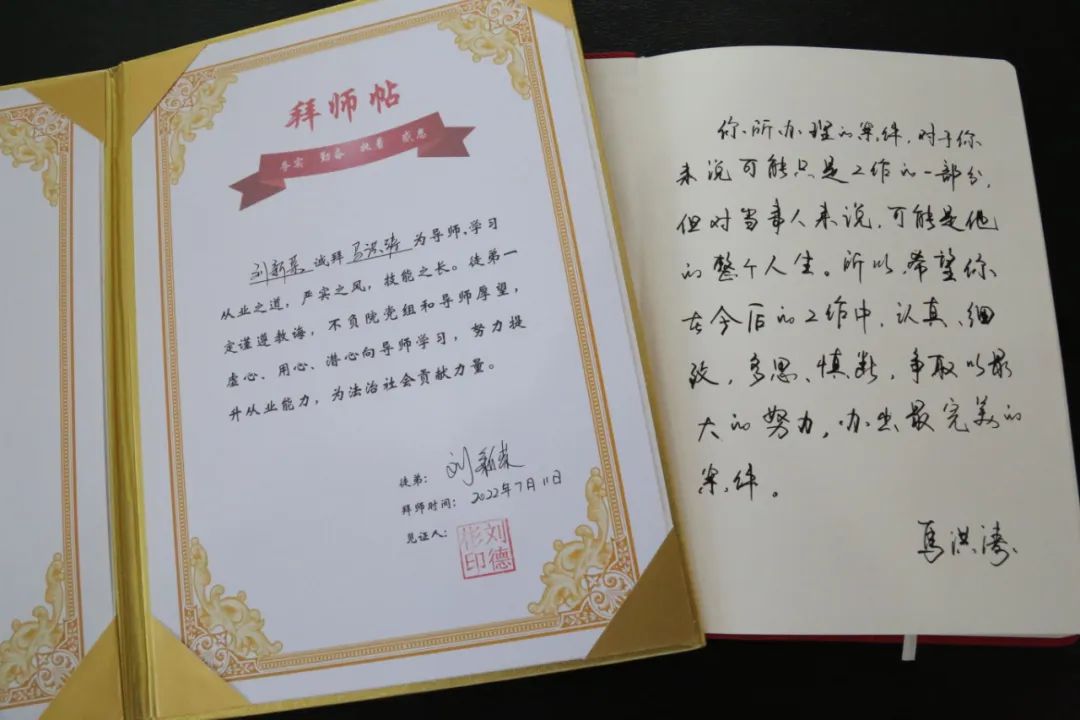 拜师帖
务实 勤奋 执着 感恩
刘新森诚拜马洪涛为导师,学习
从业之道，严实之风，技能之长。徒弟一
定谨遵教诲，不负院党组和导师厚望，
虚心、用心、潜心向导师学习，努力提
升从业能力，为法治社会贡献力量。
徒弟：刘新森
拜师时间：2022年7月11日
见证人：
刘德
彬印
你所办理的案件,对于你
来说可能只是工作的一部分,
但对当事人来说,可能是他
的整个人生。所以,希望你
在今后的工作中,认真、细
致,多思、慎断,争取以最
大的努力,办出最完美的
案件。
马洪涛